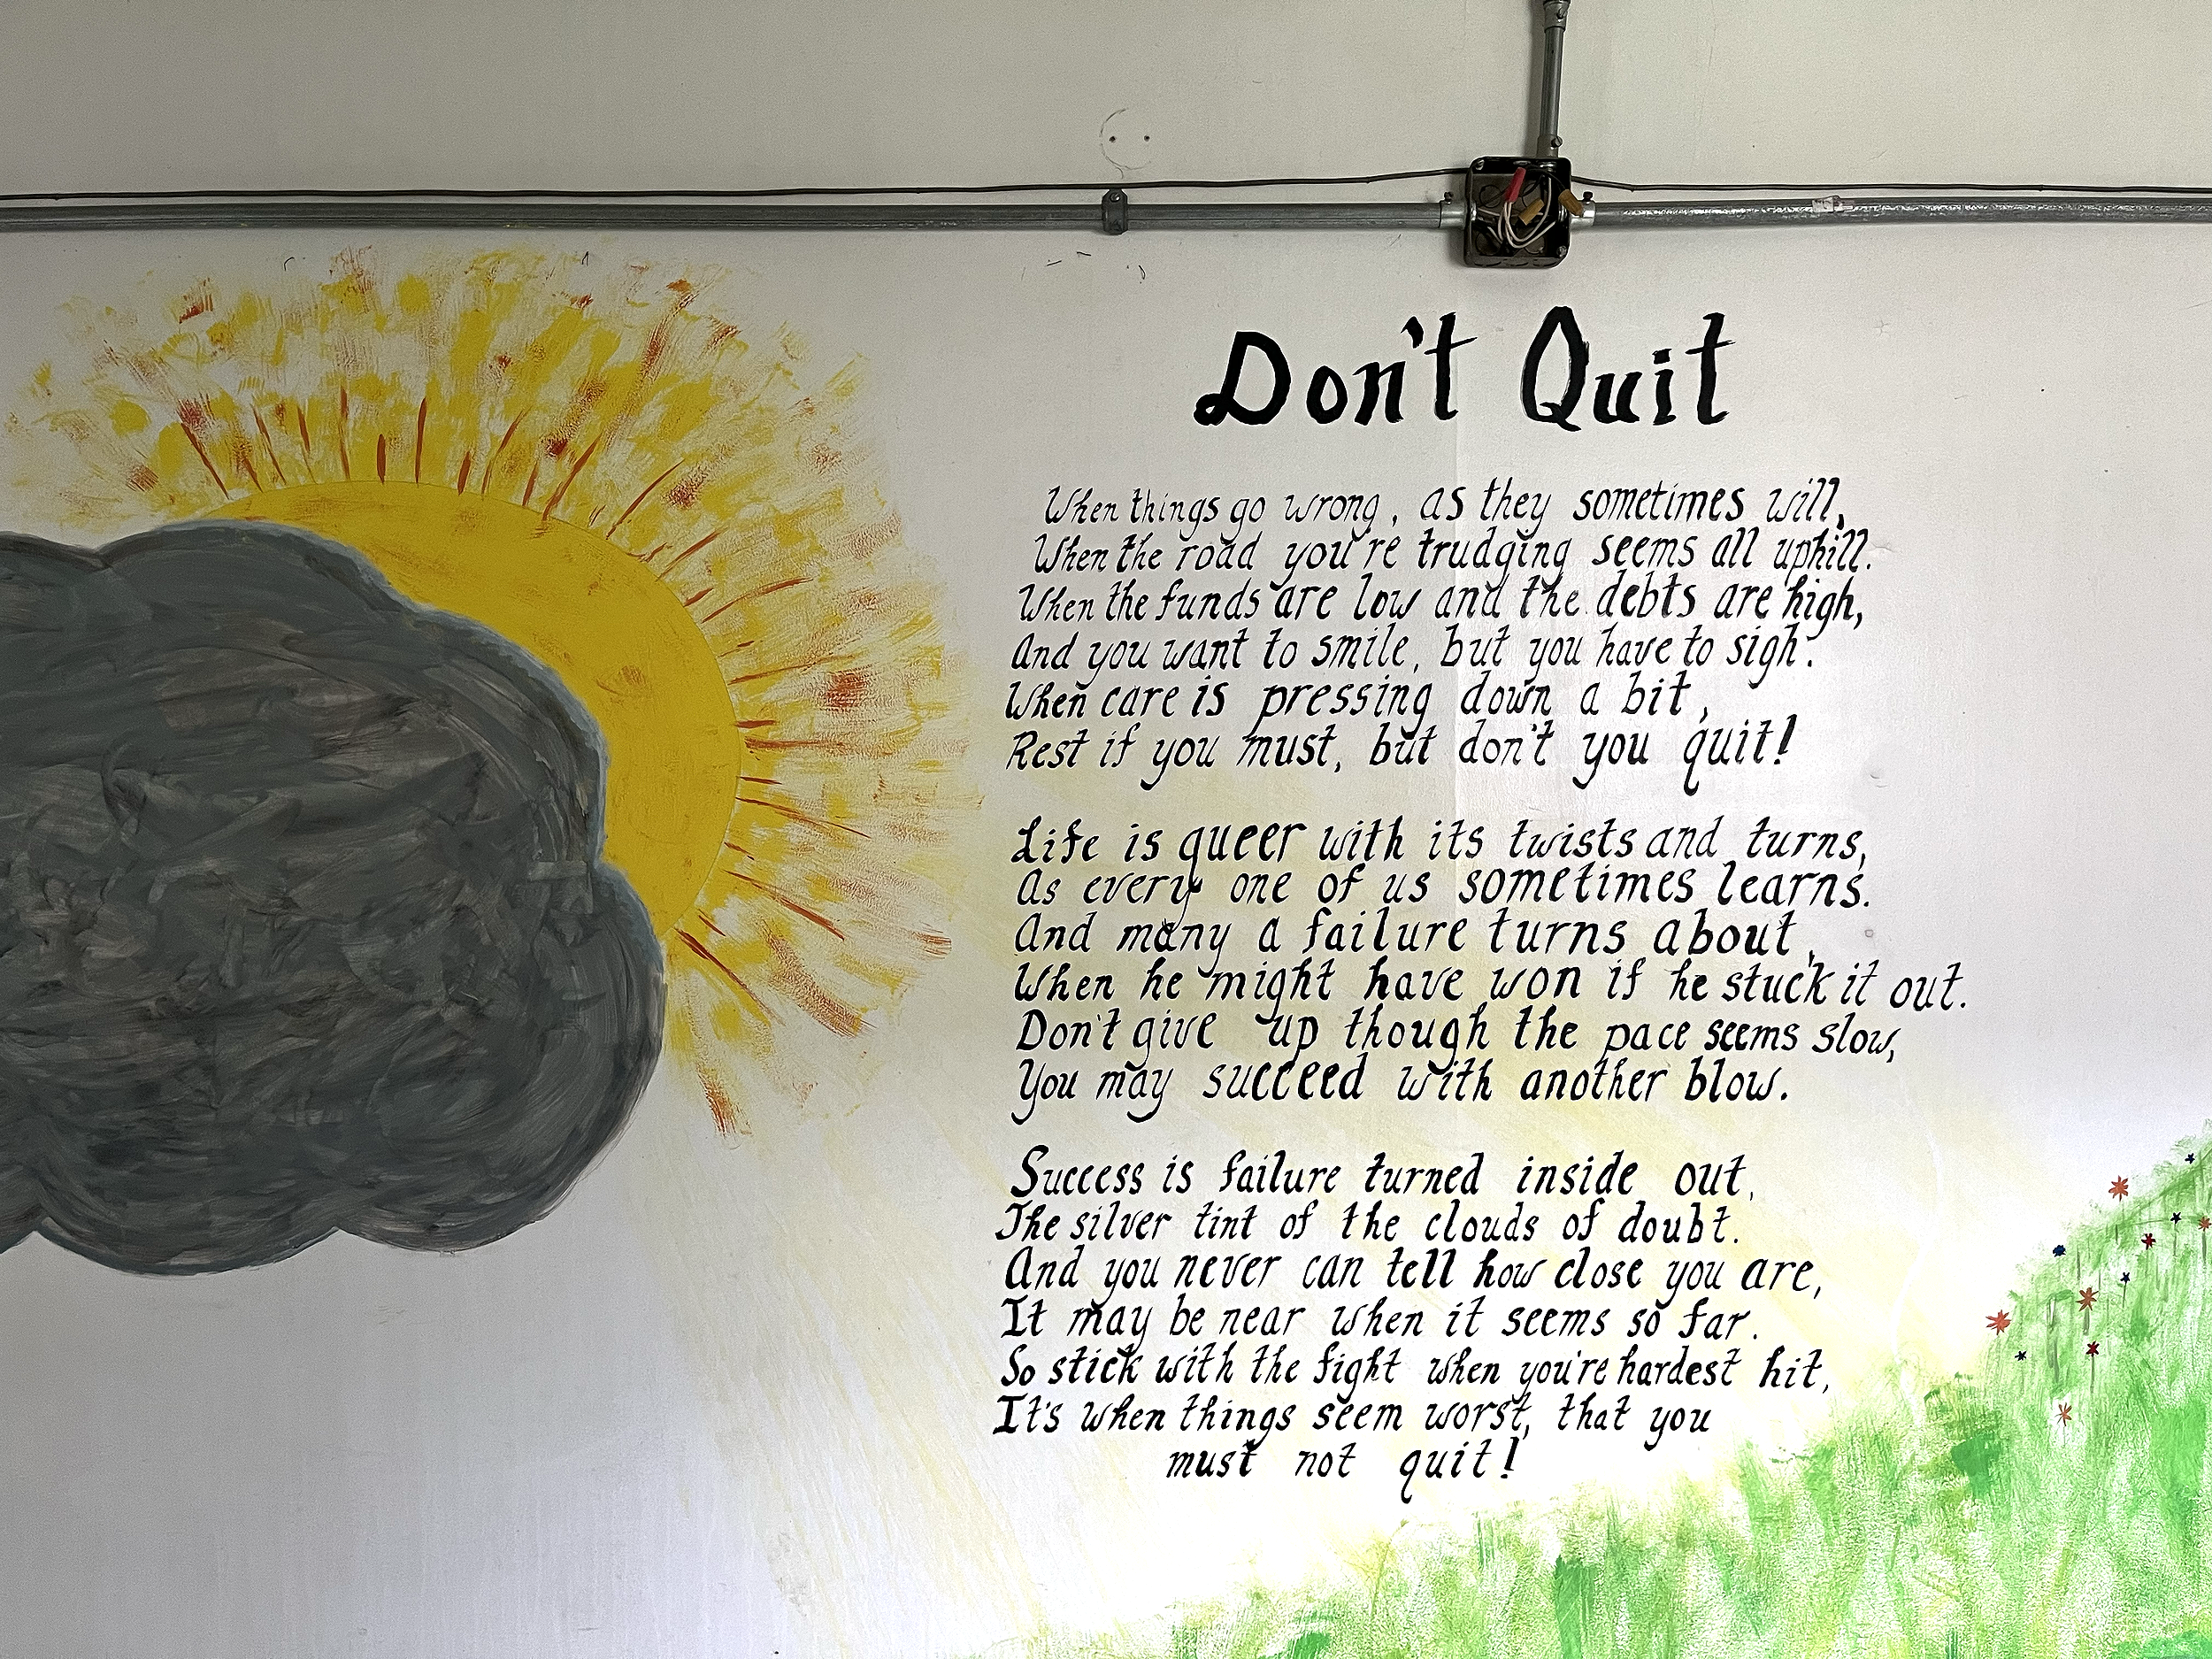 Don't Quit
When things go wrong, as they sometimes will,
When the road you're trudging seems all uphill.
When the funds are low and the debts are high,
And you want to smile, but you have to sigh.
When care is pressing down a bit,
Rest if you must, but don't you quit!
Life is queer with its twists and turns,
As every one of us sometimes learns.
And many a failure turns about,
When he might have won if he stuck it out.
Don't give up though the pace seems slow,
You may succeed with another blow.
Success is failure turned inside out,
The silver tint of the clouds of doubt.
And you never can tell how close you are,
It may be near when it seems so far.
So stick with the fight when you're hardest hit,
It's when things seem worst, that you
must not quit!